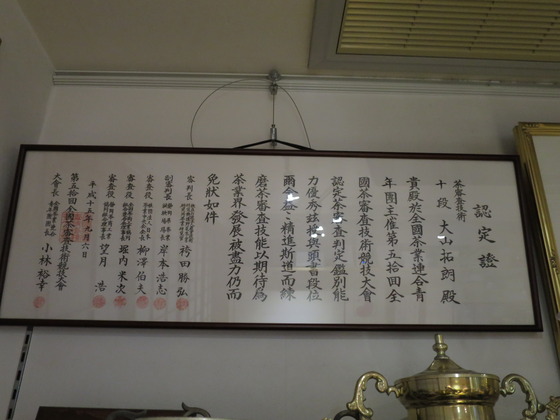 認定證
茶審査技術
十段 大山拓朗殿
貴殿於全国茶業連合青
年團主催第五拾回全
國茶審査技術競技大會
認定茶審査判定鑑別能
力優秀茲授與頭書段位
爾今益々精進斯道而錬
磨茶審査技能以期待爲
茶業界發展被盡力仍而
免狀如件
審判長
袴田勝弘
副審判長
岸本浩志
審査役
柳澤伯夫
審査役
堀内米次
審査役
望月 浩
平成十五年九月六日
第五拾回全國茶審査技術競技大會
大會長
小林裕幸